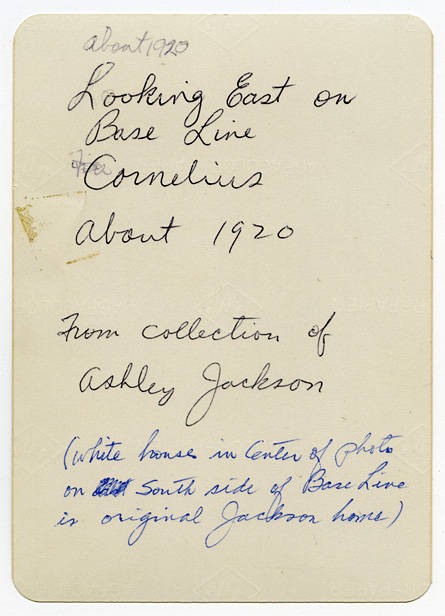 about 1920
Looking East on
Base Line
Cornelius
About 1920
From collection of
Ashley Jackson
(white house in Center of photo
on South side of Base Line
is original Jackson home)